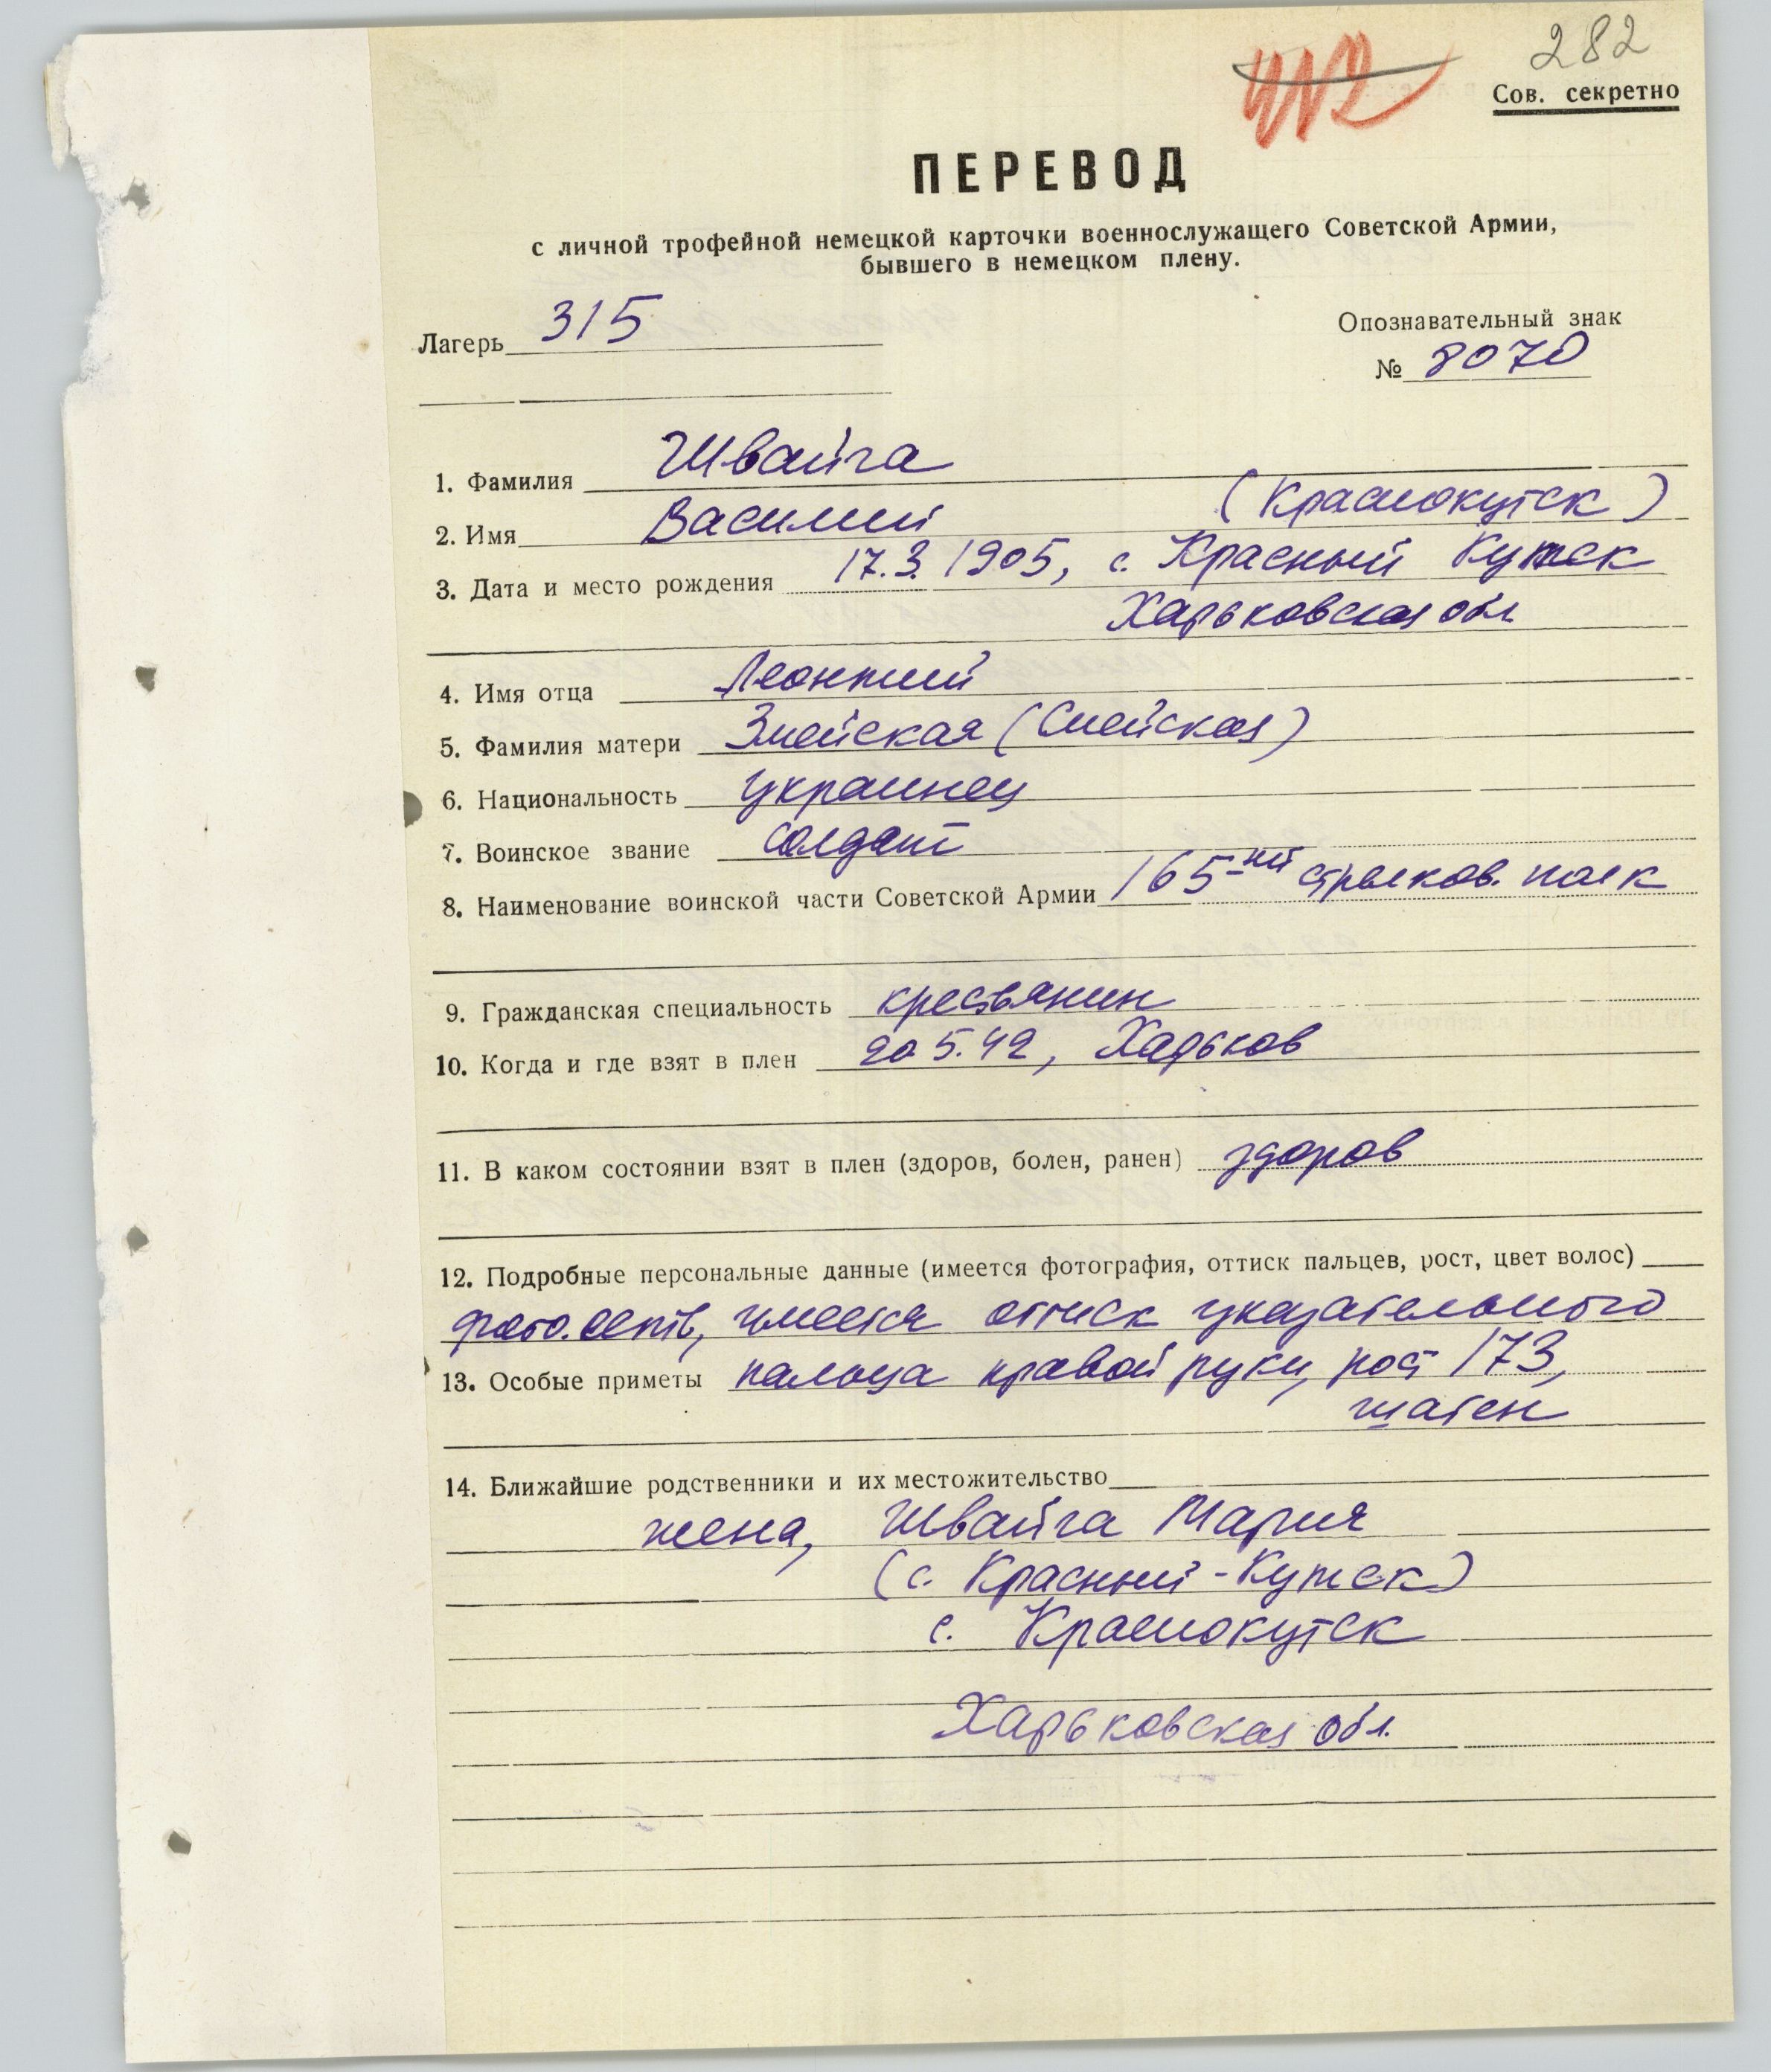 282
Сов. секретно
ПЕРЕВОД
с личной трофейной немецкой карточки военнослужащего Советской Армии,
бывшего в немецком плену.
Лагерь 315
Опознавательный знак
№ 8070
1. Фамилия Швайга
2. Имя Василий (Краснокутск)
3. Дата и место рождения 17.3.1905, с. Красный Кутск
Харьковская обл
4. Имя отца Леонтий
5. Фамилия матери Змейская (Смейская)
6. Национальность украинец
7. Воинское звание солдат
8. Наименование воинской части Советской Армии 165-ый стрелков. полк
9. Гражданская специальность крестьянин
10. Когда и где взят в плен 20.5.42, Харьков
11. В каком состоянии взят в плен (здоров, болен, ранен) здоров
12. Подробные персональные данные (имеется фотография, оттиск пальцев, рост, цвет волос)
фото. есть, имеется оттиск указательного
13. Особые приметы пальца правой руки, рост 173,
шатен
14. Ближайшие родственники и их местожительство
жена, Швайга Мария
(с. Красный-Кутск)
с. Краснокутск
Харьковская обл.